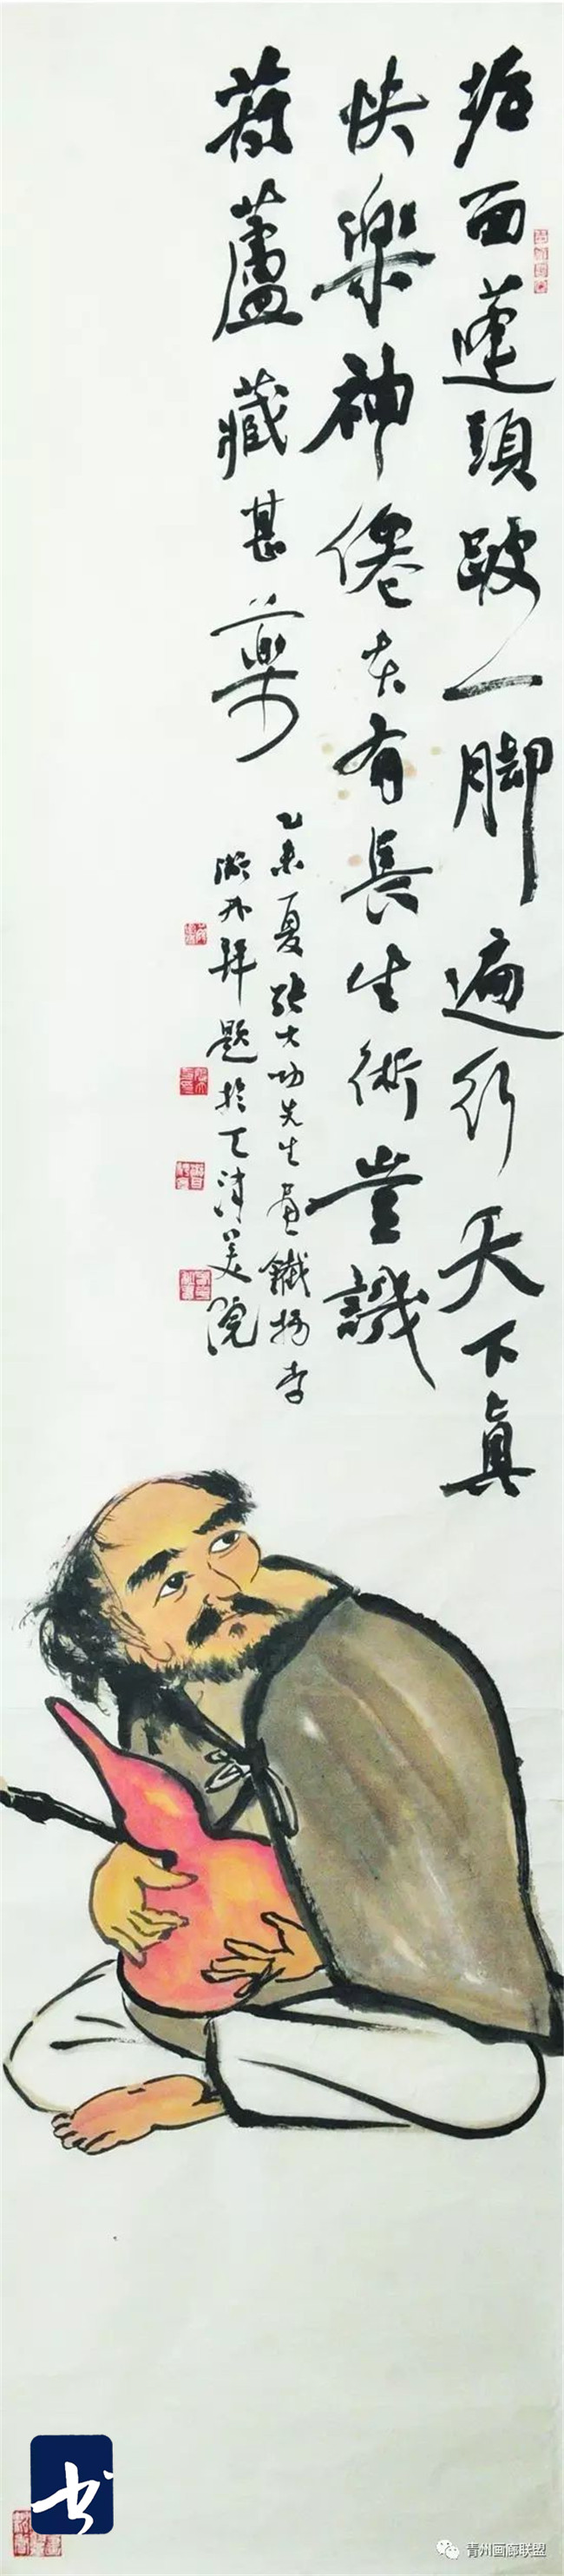 垢面蓬頭跛一脚遍行天下真
快樂神僊在有長生術豈識
葫蘆藏甚藥
乙未夏張大功先生畫鐵拐李
瀚外拜題於天津美院
书
青州画廊联盟